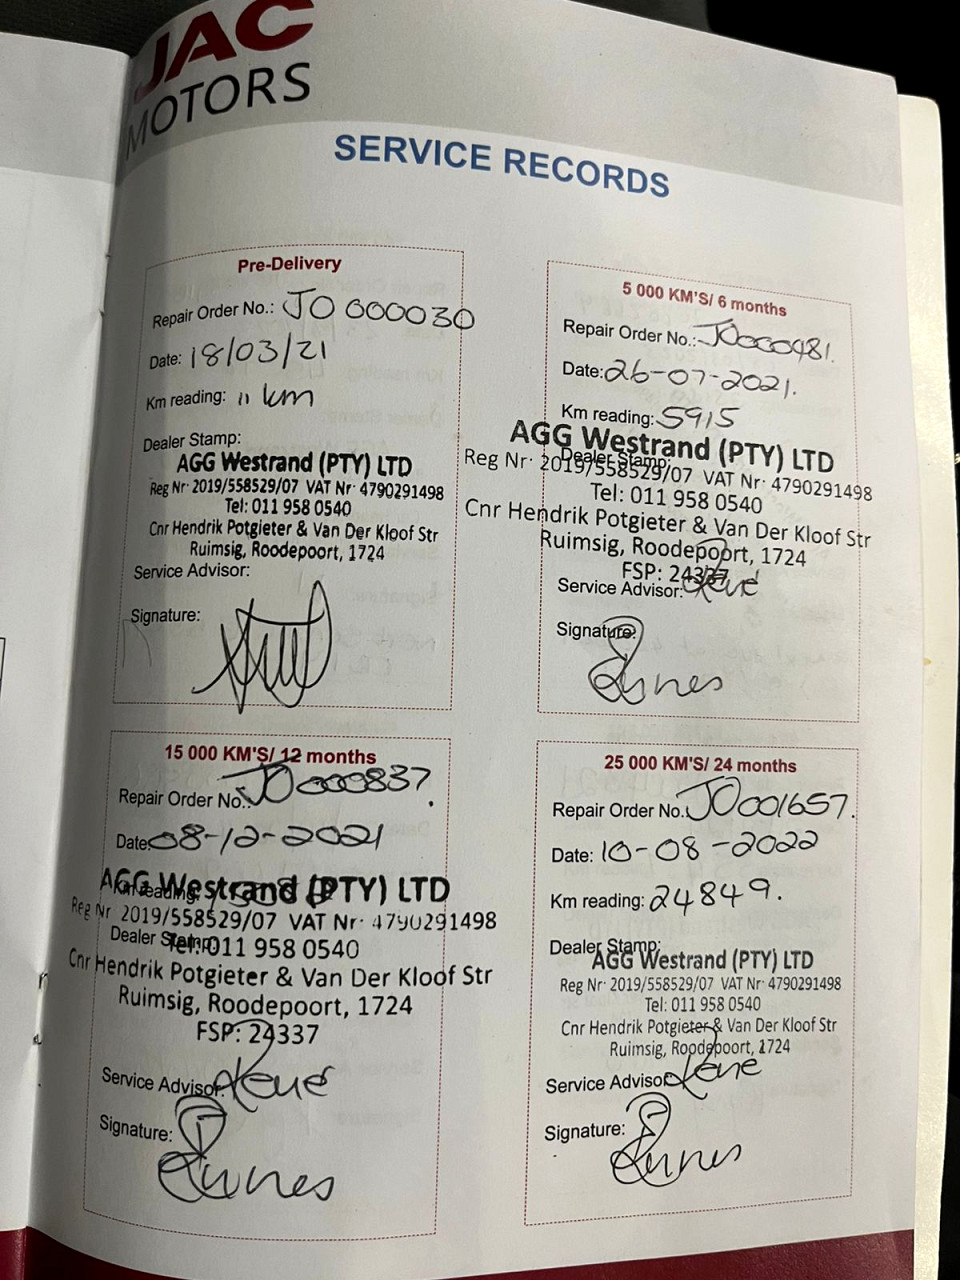 JAC
MOTORS
SERVICE RECORDS
Pre-Delivery
Repair Order No.: JO 000030
Date: 18/03/21
Km reading: 11 km
Dealer Stamp:
AGG Westrand (PTY) LTD
Reg Nr· 2019/558529/07 VAT Nr· 4790291498
Tel: 011 958 0540
Cnr Hendrik Potgieter & Van Der Kloof Str
Ruimsig, Roodepoort, 1724
Service Advisor:
Signature:
5 000 KM'S/ 6 months
Repair Order No.: JO000481.
Date: 26-07-2021.
Km reading: 5915
AGG Westrand (PTY) LTD
Dealer Stamp:
Reg Nr· 2019/558529/07 VAT Nr· 4790291498
Tel: 011 958 0540
Cnr Hendrik Potgieter & Van Der Kloof Str
Ruimsig, Roodepoort, 1724
FSP: 24337
Service Advisor: René
Signature:
15 000 KM'S/ 12 months
Repair Order No.: JO000837.
Date: 08-12-2021
AGG Westrand (PTY) LTD
Km reading:
Reg Nr 2019/558529/07 VAT Nr· 4790291498
Dealer Stamp:
Tel: 011 958 0540
Cnr Hendrik Potgieter & Van Der Kloof Str
Ruimsig, Roodepoort, 1724
FSP: 24337
Service Advisor: René
Signature:
25 000 KM'S/ 24 months
Repair Order No.: JO001657.
Date: 10-08-2022
Km reading: 24849.
Dealer Stamp:
AGG Westrand (PTY) LTD
Reg Nr· 2019/558529/07 VAT Nr· 4790291498
Tel: 011 958 0540
Cnr Hendrik Potgieter & Van Der Kloof Str
Ruimsig, Roodepoort, 1724
Service Advisor: Rene
Signature: